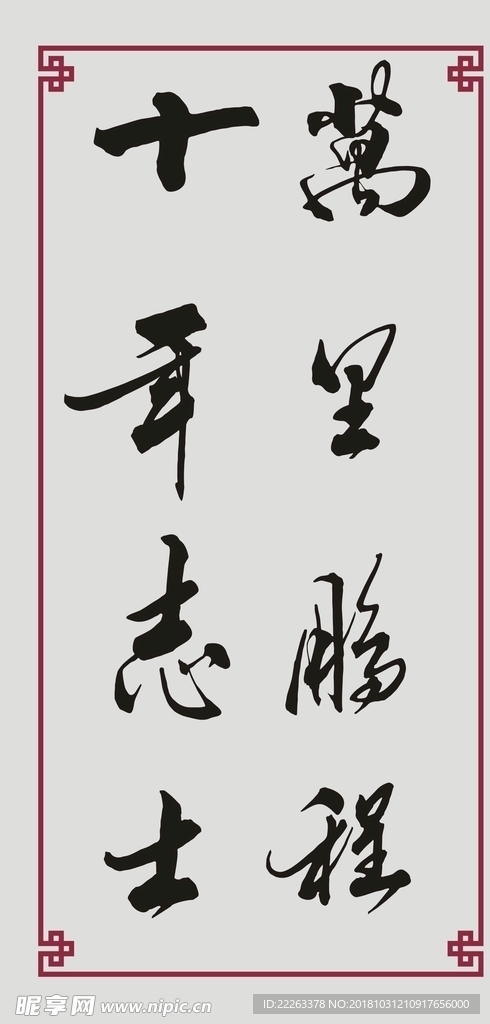 萬里鵬程
十年志士
昵享网 www.nipic.cn
ID:22263378 NO:20181031210917656000